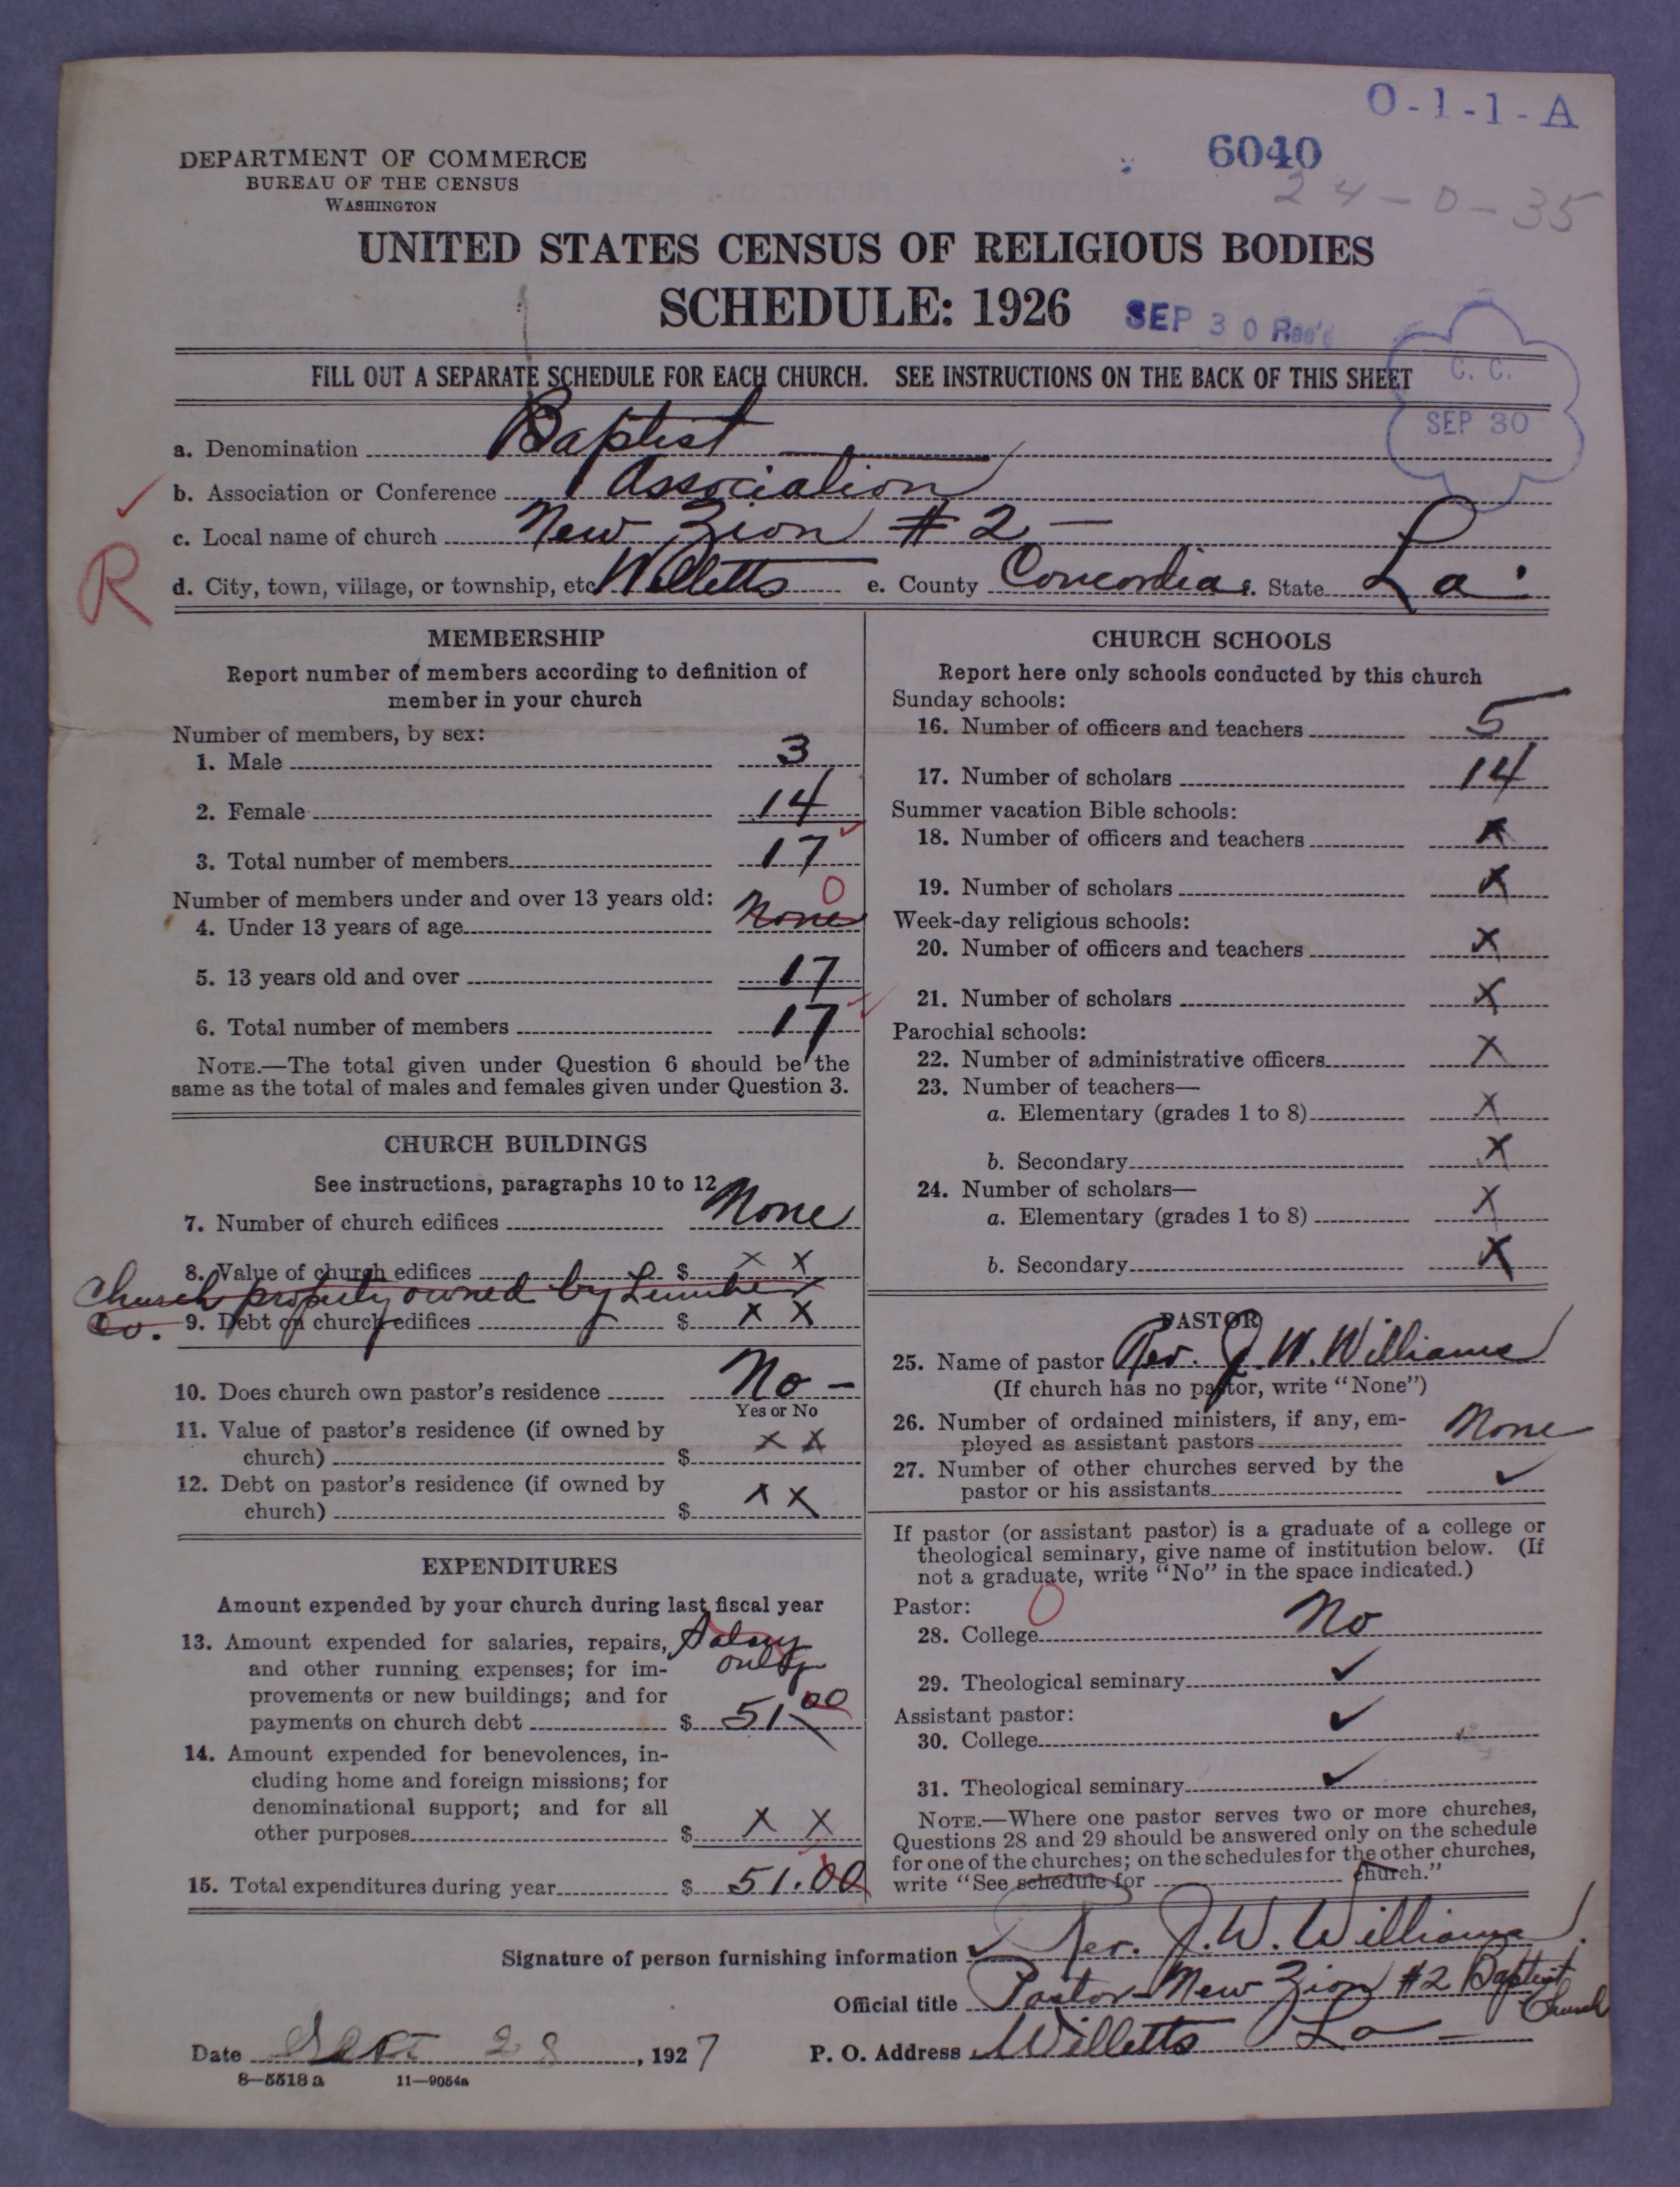 O-1-1-A
DEPARTMENT OF COMMERCE
BUREAU OF THE CENSUS
WASHINGTON
6040
24-0-35
UNITED STATES CENSUS OF RELIGIOUS BODIES
SCHEDULE: 1926
SEP 30 Rec'd
C. C.
SEP 30
FILL OUT A SEPARATE SCHEDULE FOR EACH CHURCH. SEE INSTRUCTIONS ON THE BACK OF THIS SHEET
a. Denomination Baptist
b. Association or Conference Association
c. Local name of church New Zion #2 —
d. City, town, village, or township, etc. Willetts e. County Concordia f. State La.
R
MEMBERSHIP
Report number of members according to definition of
member in your church
Number of members, by sex:
1. Male 3
2. Female 14
3. Total number of members 17
Number of members under and over 13 years old: 0
4. Under 13 years of age None
5. 13 years old and over 17
6. Total number of members 17
NOTE.—The total given under Question 6 should be the
same as the total of males and females given under Question 3.
CHURCH BUILDINGS
See instructions, paragraphs 10 to 12
7. Number of church edifices None
8. Value of church edifices $ x x
Church property owned by Lumber
Co.
9. Debt on church edifices $ x x
10. Does church own pastor's residence No —
Yes or No
11. Value of pastor's residence (if owned by
church) $ x x
12. Debt on pastor's residence (if owned by
church) $ x x
EXPENDITURES
Amount expended by your church during last fiscal year
13. Amount expended for salaries, repairs, Salary
and other running expenses; for im- only
provements or new buildings; and for
payments on church debt $ 51.00
14. Amount expended for benevolences, in-
cluding home and foreign missions; for
denominational support; and for all
other purposes $ x x
15. Total expenditures during year $ 51.00
CHURCH SCHOOLS
Report here only schools conducted by this church
Sunday schools:
16. Number of officers and teachers 5
17. Number of scholars 14
Summer vacation Bible schools:
18. Number of officers and teachers x
19. Number of scholars x
Week-day religious schools:
20. Number of officers and teachers x
21. Number of scholars x
Parochial schools:
22. Number of administrative officers x
23. Number of teachers—
a. Elementary (grades 1 to 8) x
b. Secondary x
24. Number of scholars—
a. Elementary (grades 1 to 8) x
b. Secondary x
PASTOR
25. Name of pastor Rev. J. W. Williams
(If church has no pastor, write "None")
26. Number of ordained ministers, if any, em-
ployed as assistant pastors None
27. Number of other churches served by the
pastor or his assistants ✓
If pastor (or assistant pastor) is a graduate of a college or
theological seminary, give name of institution below. (If
not a graduate, write "No" in the space indicated.)
Pastor: 0
28. College No
29. Theological seminary ✓
Assistant pastor:
30. College ✓
31. Theological seminary ✓
NOTE.—Where one pastor serves two or more churches,
Questions 28 and 29 should be answered only on the schedule
for one of the churches; on the schedules for the other churches,
write "See schedule for church."
Signature of person furnishing information Rev. J. W. Williams
Official title Pastor New Zion #2 Baptist
Church
Date Sept 28, 1927 P. O. Address Willetts La —
8—5518 a 11—9054a